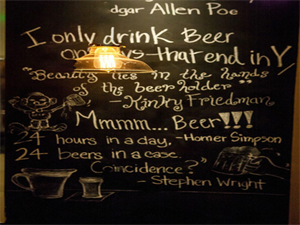 dgar Allen Poe
I only drink Beer
on days that end in Y,
"Beauty lies in the hands
of the beer holder"
-Kinky Friedman
Mmmm... Beer!!!
-Homer Simpson
24 hours in a day,
24 beers in a case.
Coincidence?"
- Stephen Wright